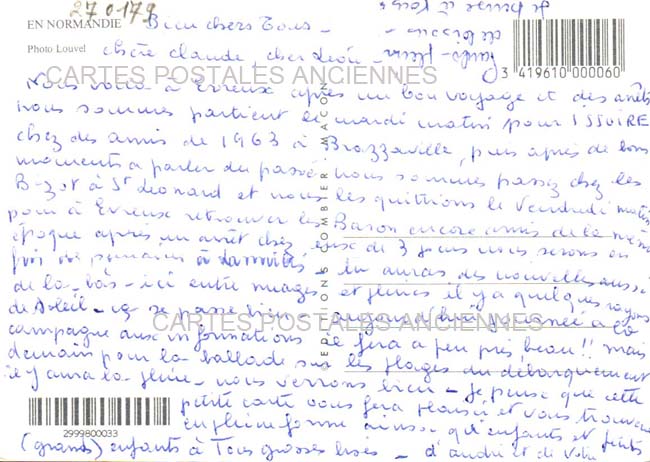 270179
EN NORMANDIE
Bien chers Tous -
Photo Louvel
chère Claude cher Léon -
je pense à tous
de bisous -
3 419610 000060
CARTES POSTALES ANCIENNES
Nous voici à Evreux après un bon voyage et des arrêts
nous sommes partient le mardi matin pour ISSOIRE
chez des amis de 1963 à Brazzaville, puis après de bons
moments à parler du passé nous sommes passez chez les
Bizot à St Léonard et nous les quittions le Vendredi matin
pour à Evreux retrouver les Baron encore amis de la même
époque après un arrêt chez eux de 3 jours nous serons en
fois de semaines à tu auras des nouvelles aussi
de là-bas - ici entre nuages et pluies il y a quelques rayons
de Soleil - ça se passe bien - aujourd'hui journée à la
CARTES POSTALES ANCIENNES
campagne aux informations il fera à peu près beau!! mais
demain pour la ballade sur les plages du débarquement
il y aura la pluie - nous verrons bien - je pense que cette
petite carte vous fera plaisir et vous trouvera
en pleine forme aussi qu'enfants et petits
(grands) enfants à Tous grosses bises - d'André et de
EDITIONS COMBIER - MACON
2999800033